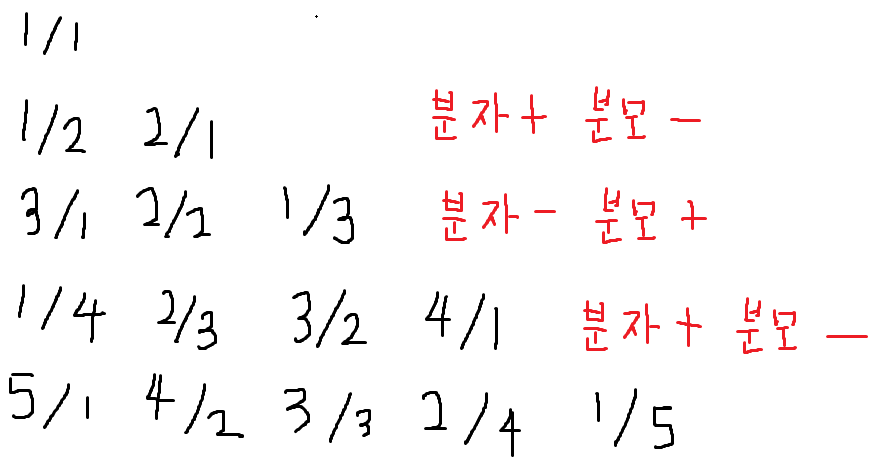 1/1
1/2 2/1 분자+ 분모-
3/1 2/2 1/3 분자- 분모+
1/4 2/3 3/2 4/1 분자+ 분모-
5/1 4/2 3/3 2/4 1/5